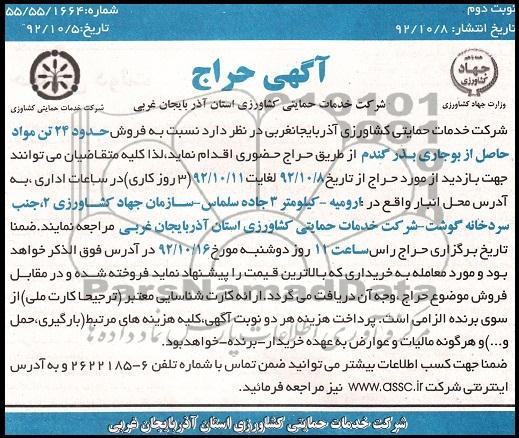 نوبت دوم
تاریخ انتشار: ۹۲/۱۰/۸
شماره:۵۵/۵۵/۱۶۶۴
تاریخ:۹۲/۱۰/۵
جهاد
کشاورزی
وزارت جهاد کشاورزی
آگهی حراج
شرکت خدمات حمایتی کشاورزی استان آذربایجان غربی
شرکت خدمات حمایتی کشاورزی
شرکت خدمات حمایتی کشاورزی آذربایجانغربی در نظر دارد نسبت به فروش حدود ۲۴ تن مواد
حاصل از بوجاری بذر گندم از طریق حراج حضوری اقدام نماید،لذا کلیه متقاضیان می توانند
جهت بازدید از مورد حراج از تاریخ ۹۲/۱۰/۸ لغایت ۹۲/۱۰/۱۱ (۳ روز کاری)در ساعات اداری ،به
آدرس محل انبار واقع در :ارومیه -کیلومتر ۳ جاده سلماس-سازمان جهاد کشاورزی ۲،جنب
سردخانه گوشت-شرکت خدمات حمایتی کشاورزی آذربایجان غربی مراجعه نمایند.ضمنا
تاریخ برگزاری حراج راس ساعت ۱۱ روز دوشنبه مورخ ۹۲/۱۰/۱۶ در آدرس فوق الذکر خواهد
بود و مورد معامله به خریداری که بالاترین قیمت را پیشنهاد نماید فروخته شده و در مقابل
فروش موضوع حراج، وجه آن دریافت می گردد. ارائه کارت شناسایی معتبر (ترجیحا کارت ملی) از
سوی برنده الزامی است. پرداخت هزینه هر دو نوبت آگهی،کلیه هزینه های مرتبط(بارگیری،حمل
و...)و هرگونه مالیات و عوارض به عهده خریدار-برنده-خواهدبود.
ضمنا جهت کسب اطلاعات بیشتر می توانید ضمن تماس با شماره تلفن ۶-۲۶۲۲۱۸۵ و به آدرس
اینترنتی شرکت www.assc.ir نیز مراجعه فرمائید.
شرکت خدمات حمایتی کشاورزی استان آذربایجان غربی
ParsNamadData